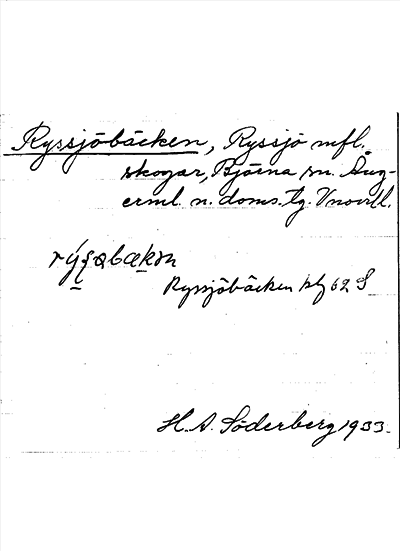 Ryssjöbäcken, Ryssjö mfl.
skogar, Björna sn. Ång-
erml. n. doms.tg. Vnorrl.
Ryssjöbäcken blz 62 S
H. A. Söderberg 1933.